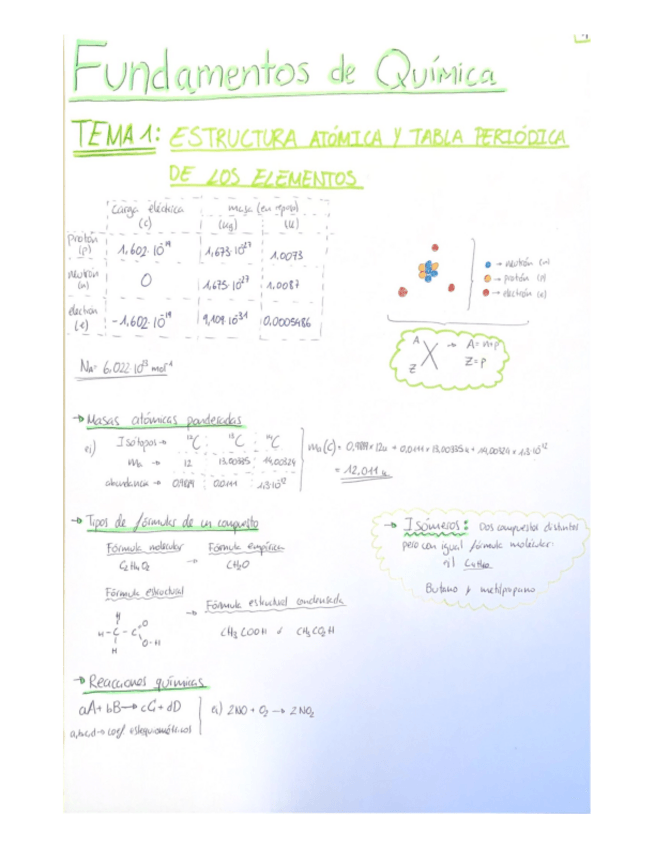 Fundamentos de Química
TEMA 1: ESTRUCTURA ATÓMICA Y TABLA PERIÓDICA
DE LOS ELEMENTOS
carga eléctrica masa (en reposo)
(C) (kg) (u)
protón (p) 1,602·10⁻¹⁹ 1,673·10⁻²⁷ 1,0073
neutrón (n) 0 1,675·10⁻²⁷ 1,0087
electrón (e) -1,602·10⁻¹⁹ 9,109·10⁻³¹ 0,0005486
→ neutrón (n)
→ protón (p)
→ electrón (e)
A X → A=n+p
Z Z=p
NA= 6,022·10²³ mol⁻¹
→ Masas atómicas ponderadas
ej) Isótopos → ¹²C ¹³C ¹⁴C
Ma → 12 13,00335 14,00324
abundancia → 0,9889 0,0111 1,3·10⁻¹²
ma(C) = 0,9889×12u + 0,0111×13,00335u + 14,00324×1,3·10⁻¹²
= 12,011 u
→ Tipos de fórmulas de un compuesto
Fórmula molecular Fórmula empírica
C₂H₄O₂ → CH₂O
Fórmula estructural
→ Fórmula estructural condensada
H
H-C-C O
H O-H
CH₃COOH ó CH₃CO₂H
→ Isómeros: Dos compuestos distintos
pero con igual fórmula molecular.
ej) C₄H₁₀
Butano y metilpropano
→ Reacciones químicas
aA + bB → cC + dD
a,b,c,d → coef estequiométricos
ej) 2NO + O₂ → 2NO₂